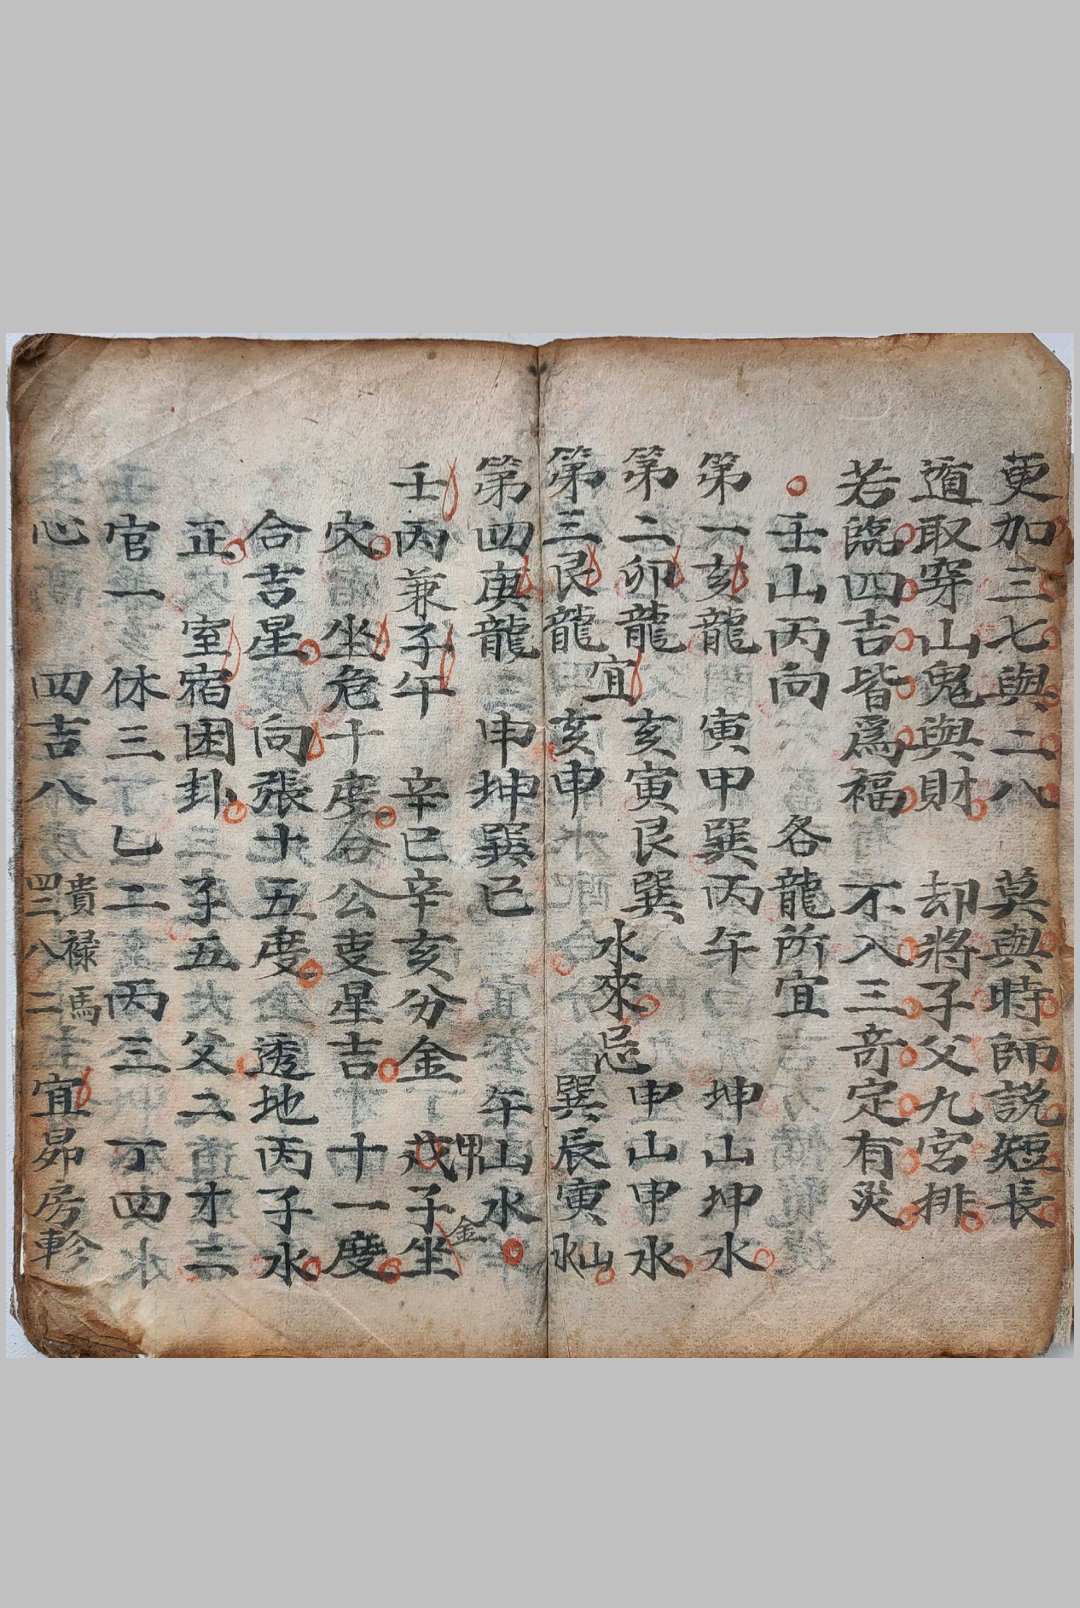 更加三七與二八　莫與時師説短長
遁取穿山鬼與財　却將子父九宮排
若臨四吉皆爲福　不入三奇定有災
壬山丙向　各龍所宜
第一亥龍　寅甲巽丙午　坤山坤水
第二卯龍　亥寅艮巽　申山申水
宜　水來忌
第三艮龍　亥申　巽辰寅山水
第四庚龍　申坤巽巳　午山水
壬丙兼子午　辛巳辛亥分金　戊子坐
甲
金
穴　坐危十度合公吏星吉　十一度
合吉星　向張十五度　透地丙子水
正　室宿困卦　子五　父二　才二
官一　休三　乙二　丙三　丁四
心　四吉八　四三八二　宜昴房軫
貴祿馬